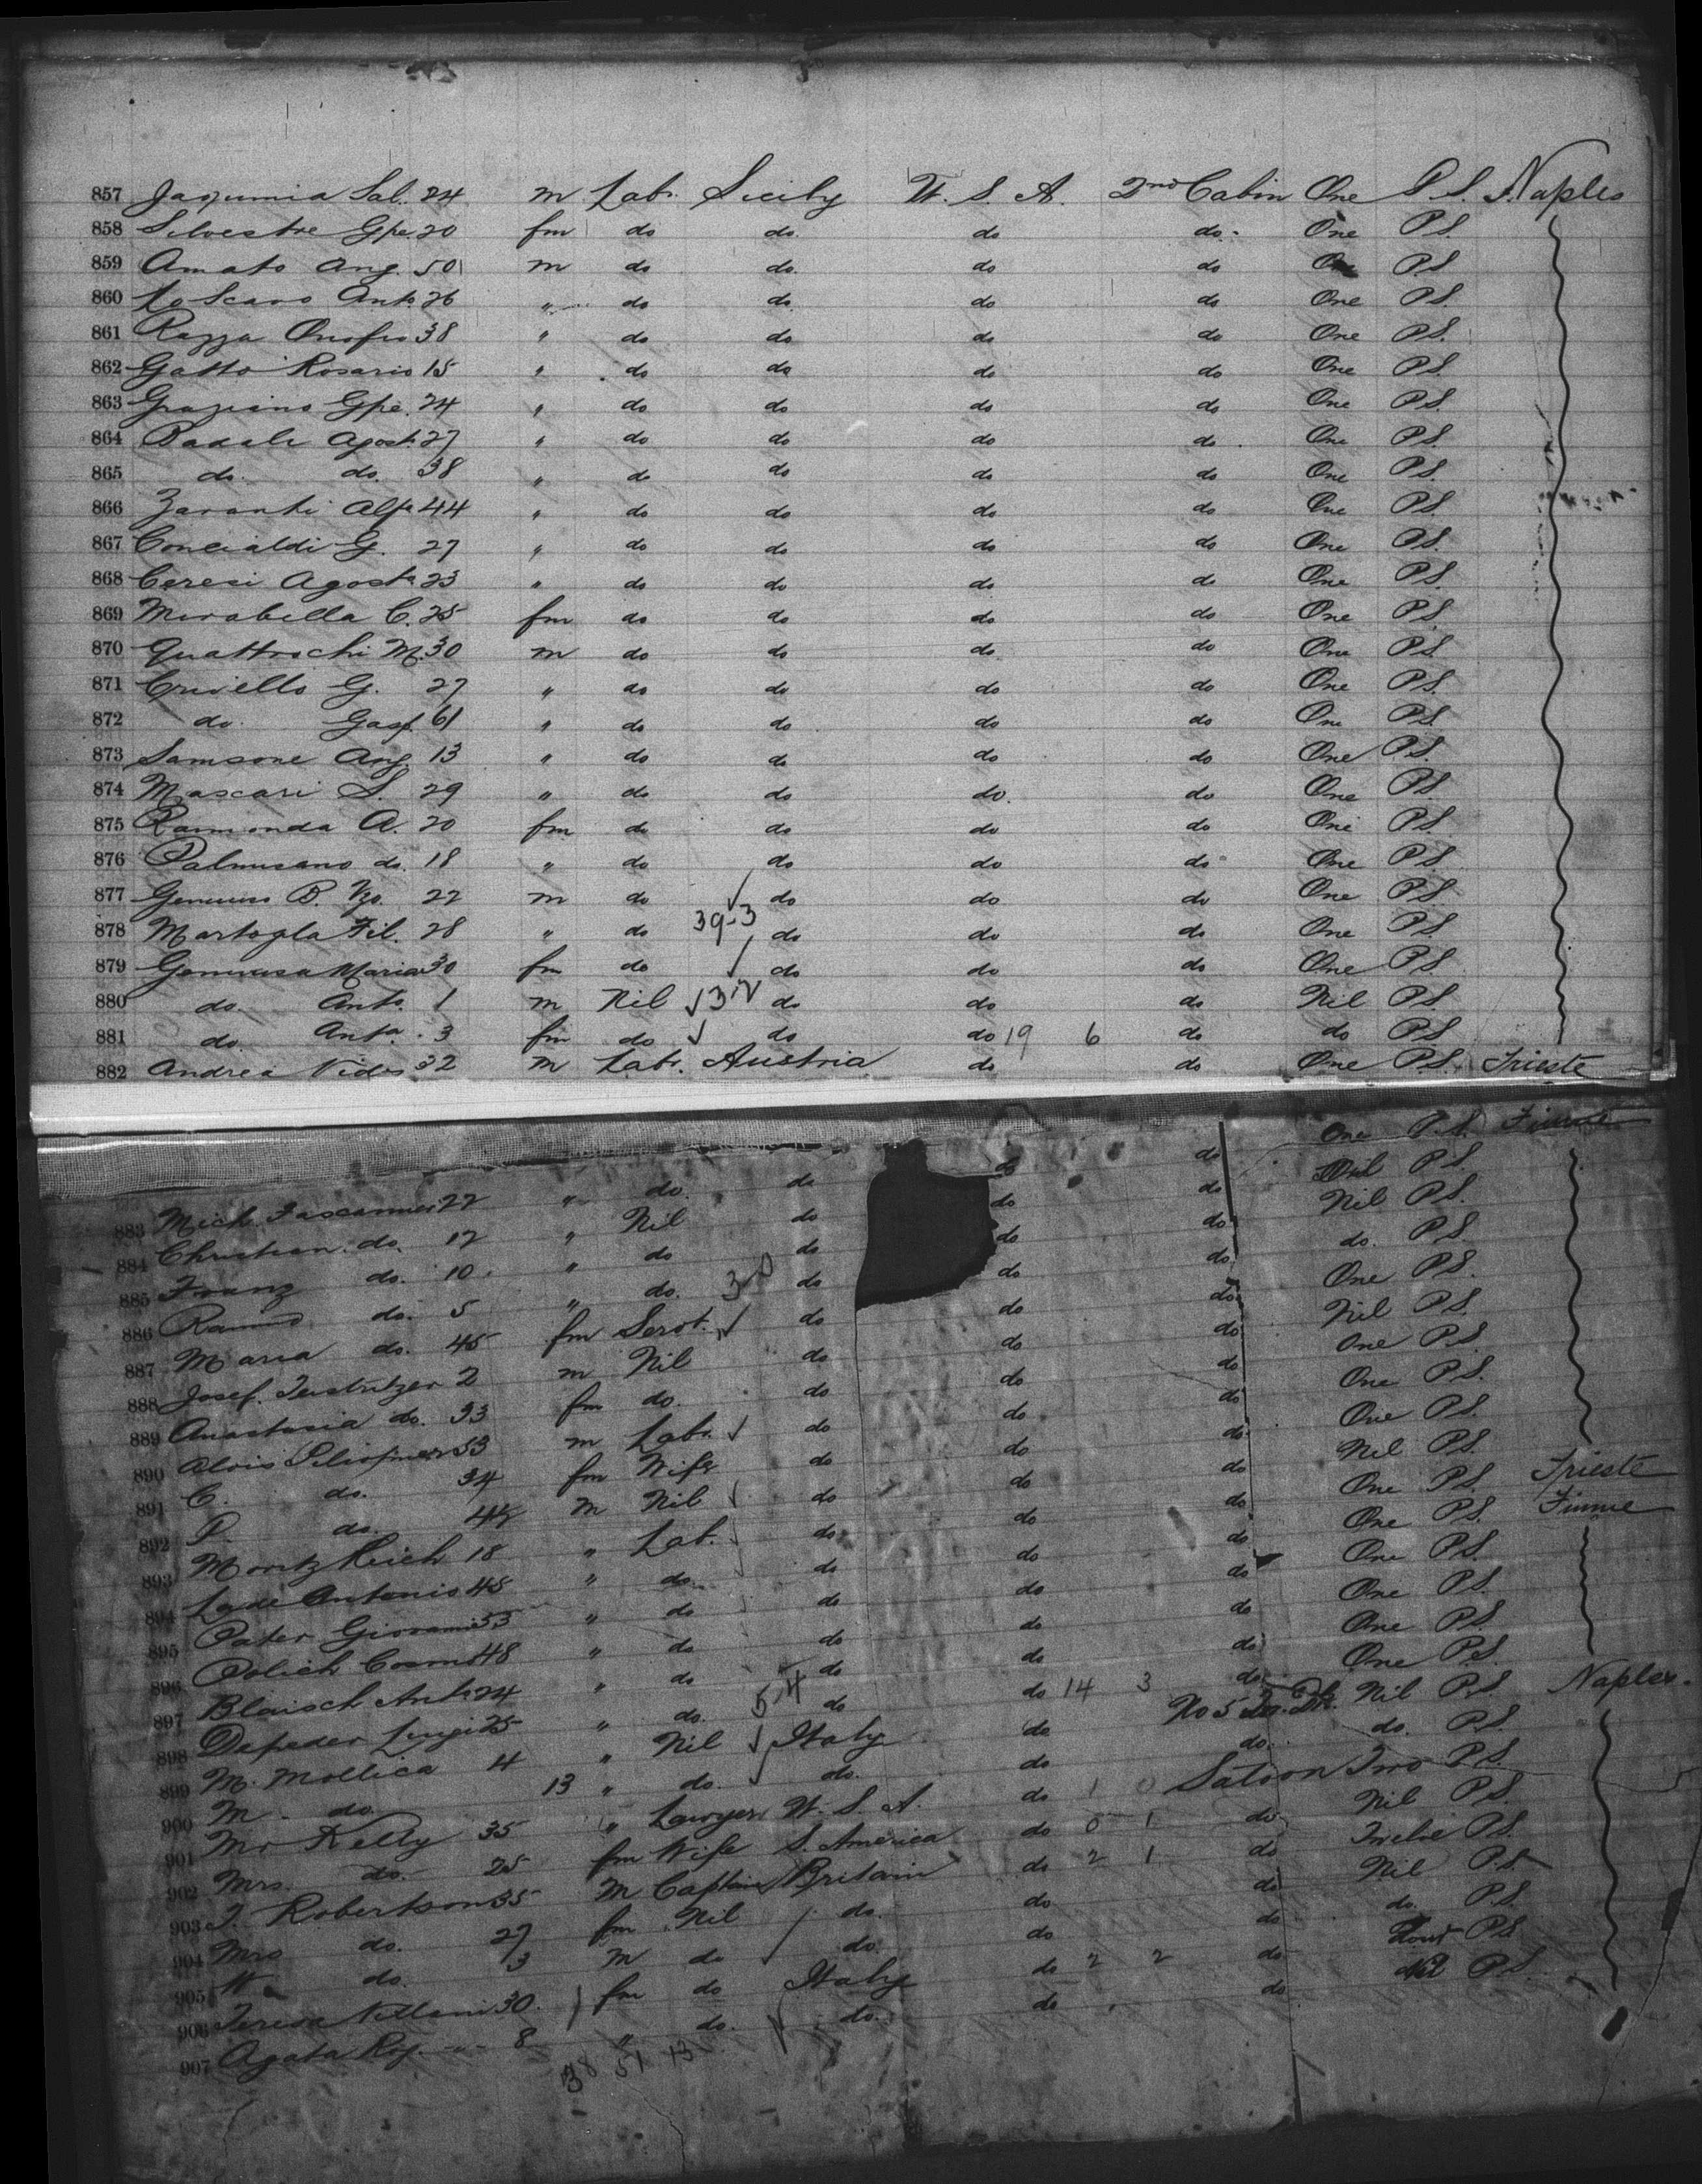 857 Jaqumia Sal. 24 m Labr. Sicily U. S. A. 2nd Cabin One P.S. Naples
858 Silvestre Gpe. 20 fm do do. do do. One P.S.
859 Amato Ang. 50 m do do. do do One P.S.
860 Lo Scavo Anto. 26 " do do. do do One P.S.
861 Razza Onofrio 38 " do do do do One P.S.
862 Gatto Rosario 15 " do do do do One P.S.
863 Graziano Gpe. 24 " do do do do One P.S.
864 Badali Agost. 27 " do do do do. One P.S.
865 do. do. 38 " do do do do One P.S.
866 Zaranti Alf. 44 " do do do do One P.S.
867 Concialdi G. 27 " do do do do One P.S.
868 Ceresi Agosta 23 " do do do do One P.S.
869 Mirabella C. 25 fm do do do do One P.S.
870 Quattrochi M. 30 m do do do do One P.S.
871 Crivello G. 27 " do do do do One P.S.
872 do. Gasp. 61 " do do do do One P.S.
873 Samsone Ang. 13 " do do do do One P.S.
874 Mascari S. 29 " do do do. do One P.S.
875 Raimonda A. 20 fm do do do do One P.S.
876 Palmisano do. 18 " do do do do One P.S.
877 B. 22 m do do do do One P.S.
878 Martogla Fil. 28 " do 39-3 do do do One P.S.
879 Genuusa Maria 30 fm do do do do One P.S.
880 do. Anto. 1 m Nil 3-2 do do do Nil P.S.
881 do. Anta. 3 fm do do do 19 6 do do P.S.
882 Andrea Nides 32 m Labr. Austria do do One P.S. Trieste
883 Mich. 22 " do. do do do One P.S. Fiume
884 Christian. do. 17 " Nil do do do Nil P.S.
885 Franz do. 10. " do do do do Nil P.S.
886 do. 5 " do. 3-0 do do do do. P.S.
887 Maria do. 45 fm Servt. do do do One P.S.
888 Josef. 2 m Nil do do do Nil P.S.
889 Anastasia do. 33 fm do. do do do One P.S.
890 Alois 53 m Labr. do do do One P.S.
891 C. do. 34 fm Wife do do do One P.S.
892 P. do. m Nil do do do Nil P.S.
893 Moritz Reich 18 " Lab. do do do One P.S. Trieste
894 Antonio 48 " do. do do do One P.S. Fiume
895 Pater Giovanni 53 " do do do do One P.S.
896 Polich Cosmo 48 " do do do do One P.S.
897 Blaisch Anto. 24 " do do do do One P.S.
898 Depeder Luigi 25 " do. 5-4 do do 14 3 do One P.S.
899 M. Mollica 4 " Nil Italy do No 5 Nil P.S. Naples.
900 M. do. 13 " do. do. do do. do. P.S.
901 Mr Kelly 35 " Lawyer U. S. A. do 1 0 Saloon Two P.S.
902 Mrs. do. 25 fm Wife S. America do 0 1 do Nil P.S.
903 J. Robertson 35 m Captain Britain do 2 1 do Twelve P.S.
904 Mrs do. 27 fm Nil do. do do Nil P.S.
905 W do. 3 m do do. do do do. P.S.
906 Teresa Villani 30. fm do Italy do 2 2 do Four P.S.
907 Agata Roy. 8 " do. do. do do Nil P.S.
38 51 13